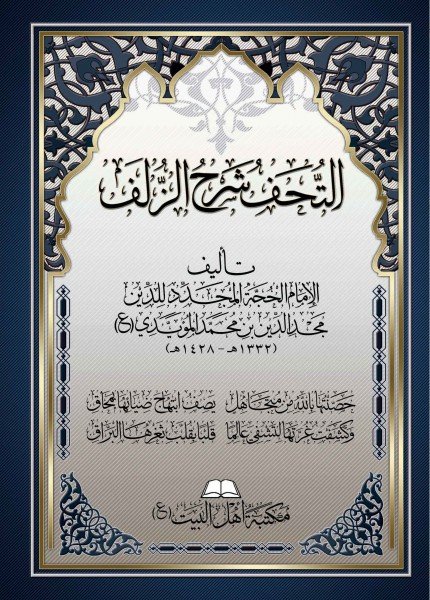 التُّحَفُ شَرْحُ الزُّلَفِ
تأليف
الإمام الحجة المجدد للدين
مجد الدين بن محمد المؤيدي (ع)
(١٣٣٢هـ - ١٤٢٨هـ)
حصنتها بالله من متجاهل يصف ابتهاج ضيائها بمحاق
وكشفت غرتها لتشفي عالما قلبا بقلب ثغرها البراق
مكتبة أهل البيت (ع)